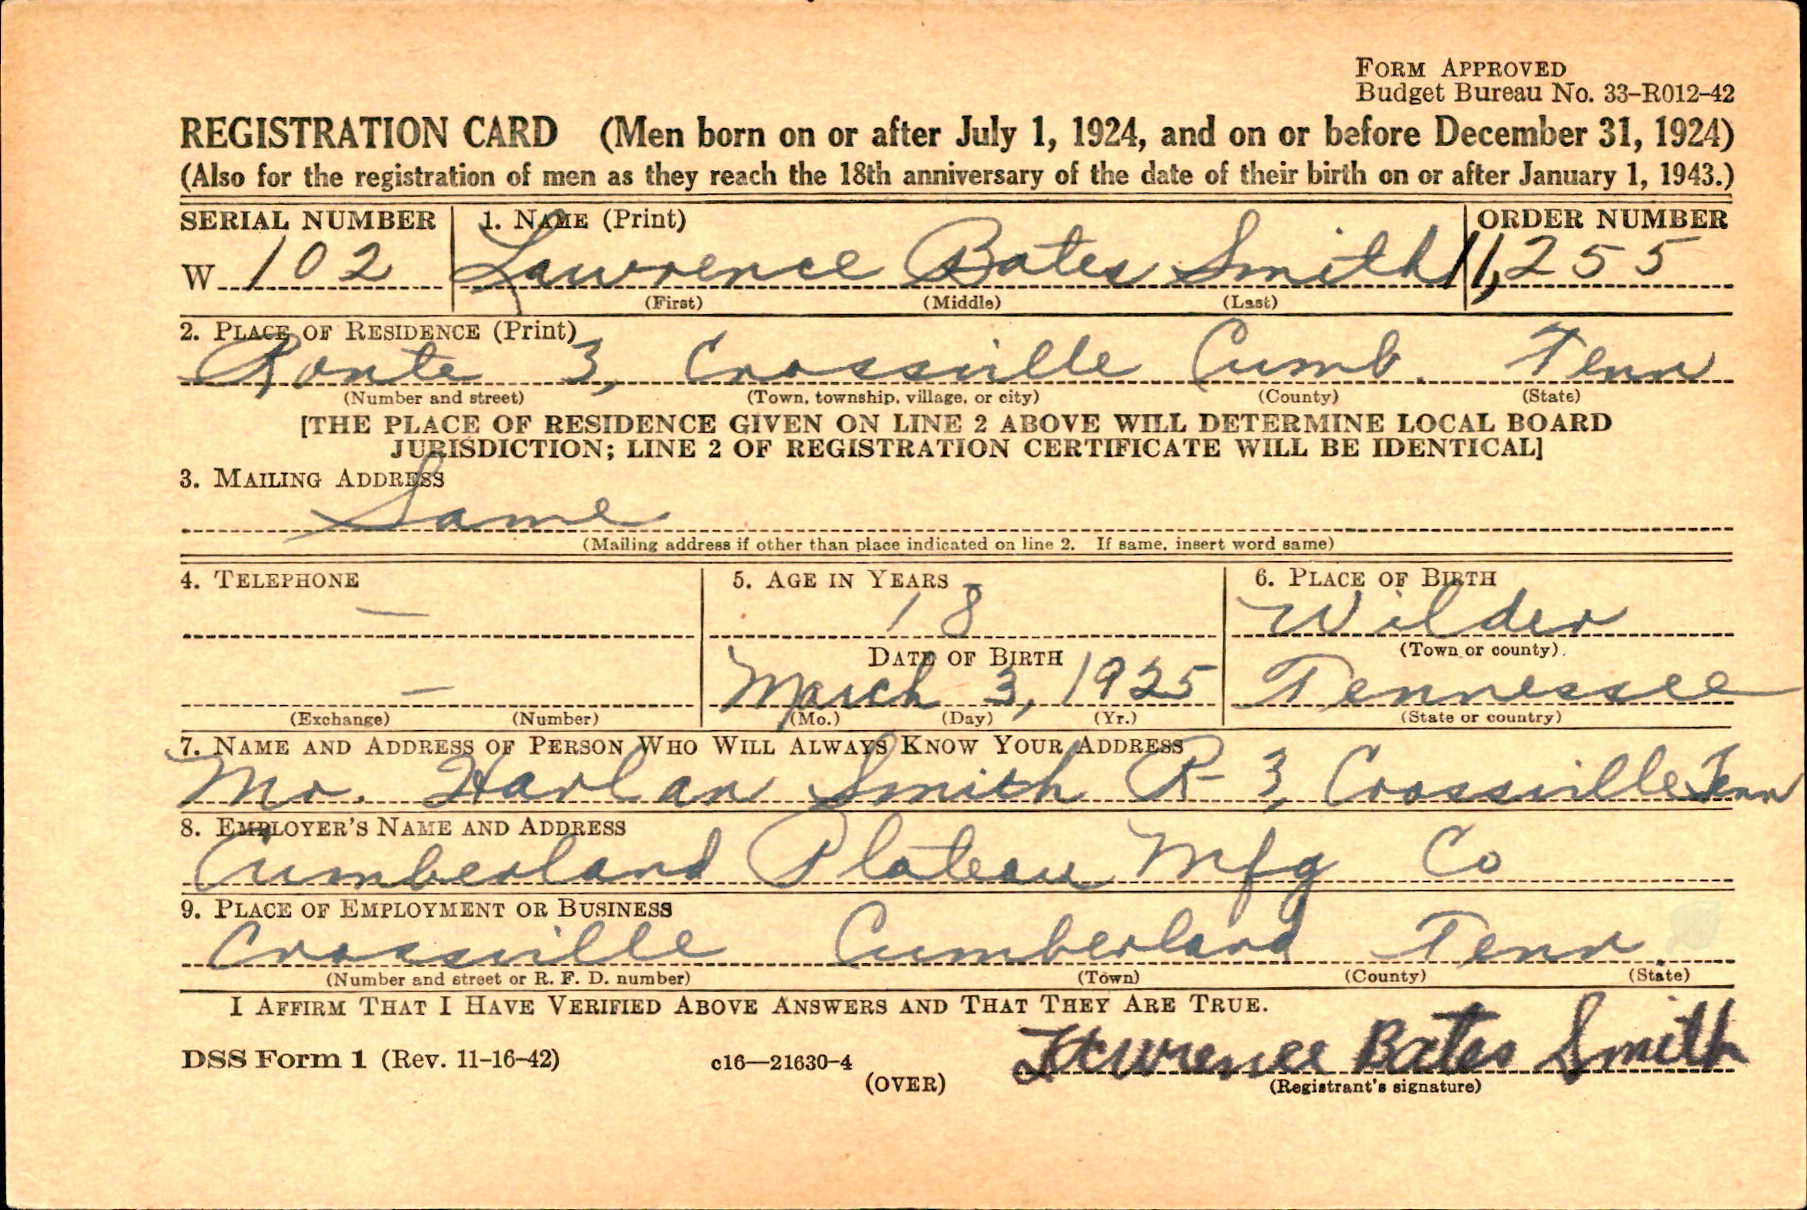 FORM APPROVED
Budget Bureau No. 33-R012-42
REGISTRATION CARD (Men born on or after July 1, 1924, and on or before December 31, 1924)
(Also for the registration of men as they reach the 18th anniversary of the date of their birth on or after January 1, 1943.)
SERIAL NUMBER 1. NAME (Print) ORDER NUMBER
W 102 Lawrence Bates Smith 11,255
(First) (Middle) (Last)
2. PLACE OF RESIDENCE (Print)
Route 3, Crossville Cumb. Tenn
(Number and street) (Town, township, village, or city) (County) (State)
[THE PLACE OF RESIDENCE GIVEN ON LINE 2 ABOVE WILL DETERMINE LOCAL BOARD
JURISDICTION; LINE 2 OF REGISTRATION CERTIFICATE WILL BE IDENTICAL]
3. MAILING ADDRESS
Same
(Mailing address if other than place indicated on line 2. If same, insert word same)
4. TELEPHONE 5. AGE IN YEARS 6. PLACE OF BIRTH
— 18 Wilder
DATE OF BIRTH (Town or county)
— March 3, 1925 Tennessee
(Exchange) (Number) (Mo.) (Day) (Yr.) (State or country)
7. NAME AND ADDRESS OF PERSON WHO WILL ALWAYS KNOW YOUR ADDRESS
Mr. Harlan Smith R-3, Crossville Tenn
8. EMPLOYER'S NAME AND ADDRESS
Cumberland Plateau Mfg Co
9. PLACE OF EMPLOYMENT OR BUSINESS
Crossville Cumberland Tenn.
(Number and street or R. F. D. number) (Town) (County) (State)
I AFFIRM THAT I HAVE VERIFIED ABOVE ANSWERS AND THAT THEY ARE TRUE.
DSS Form 1 (Rev. 11-16-42) c16—21630-4 Lawrence Bates Smith
(OVER) (Registrant's signature)